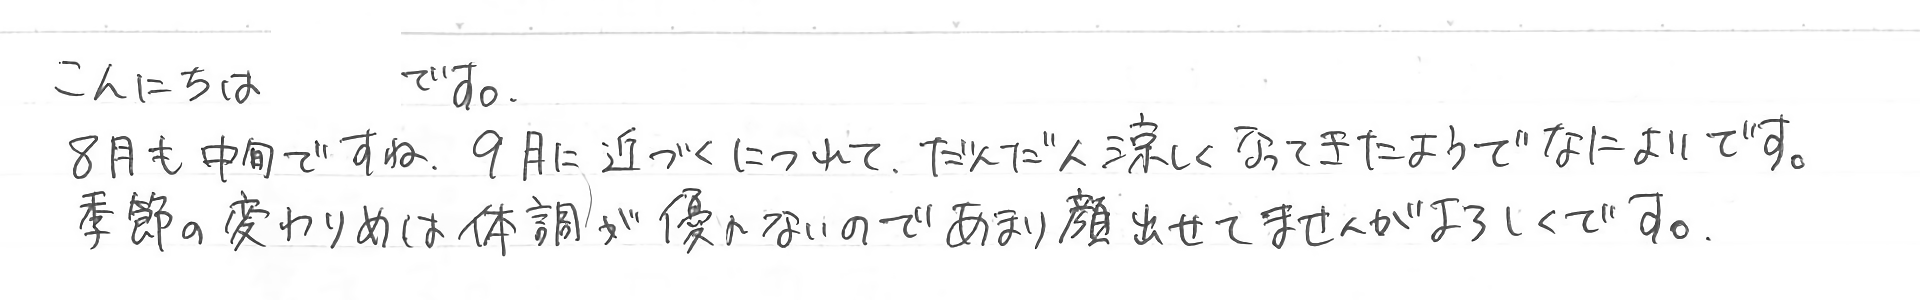 こんにちは　　　です。
8月も中旬ですね。9月に近づくにつれて、だんだん涼しくなってきたようでなによりです。
季節の変わりめは体調が優れないのであまり顔出せてませんがよろしくです。